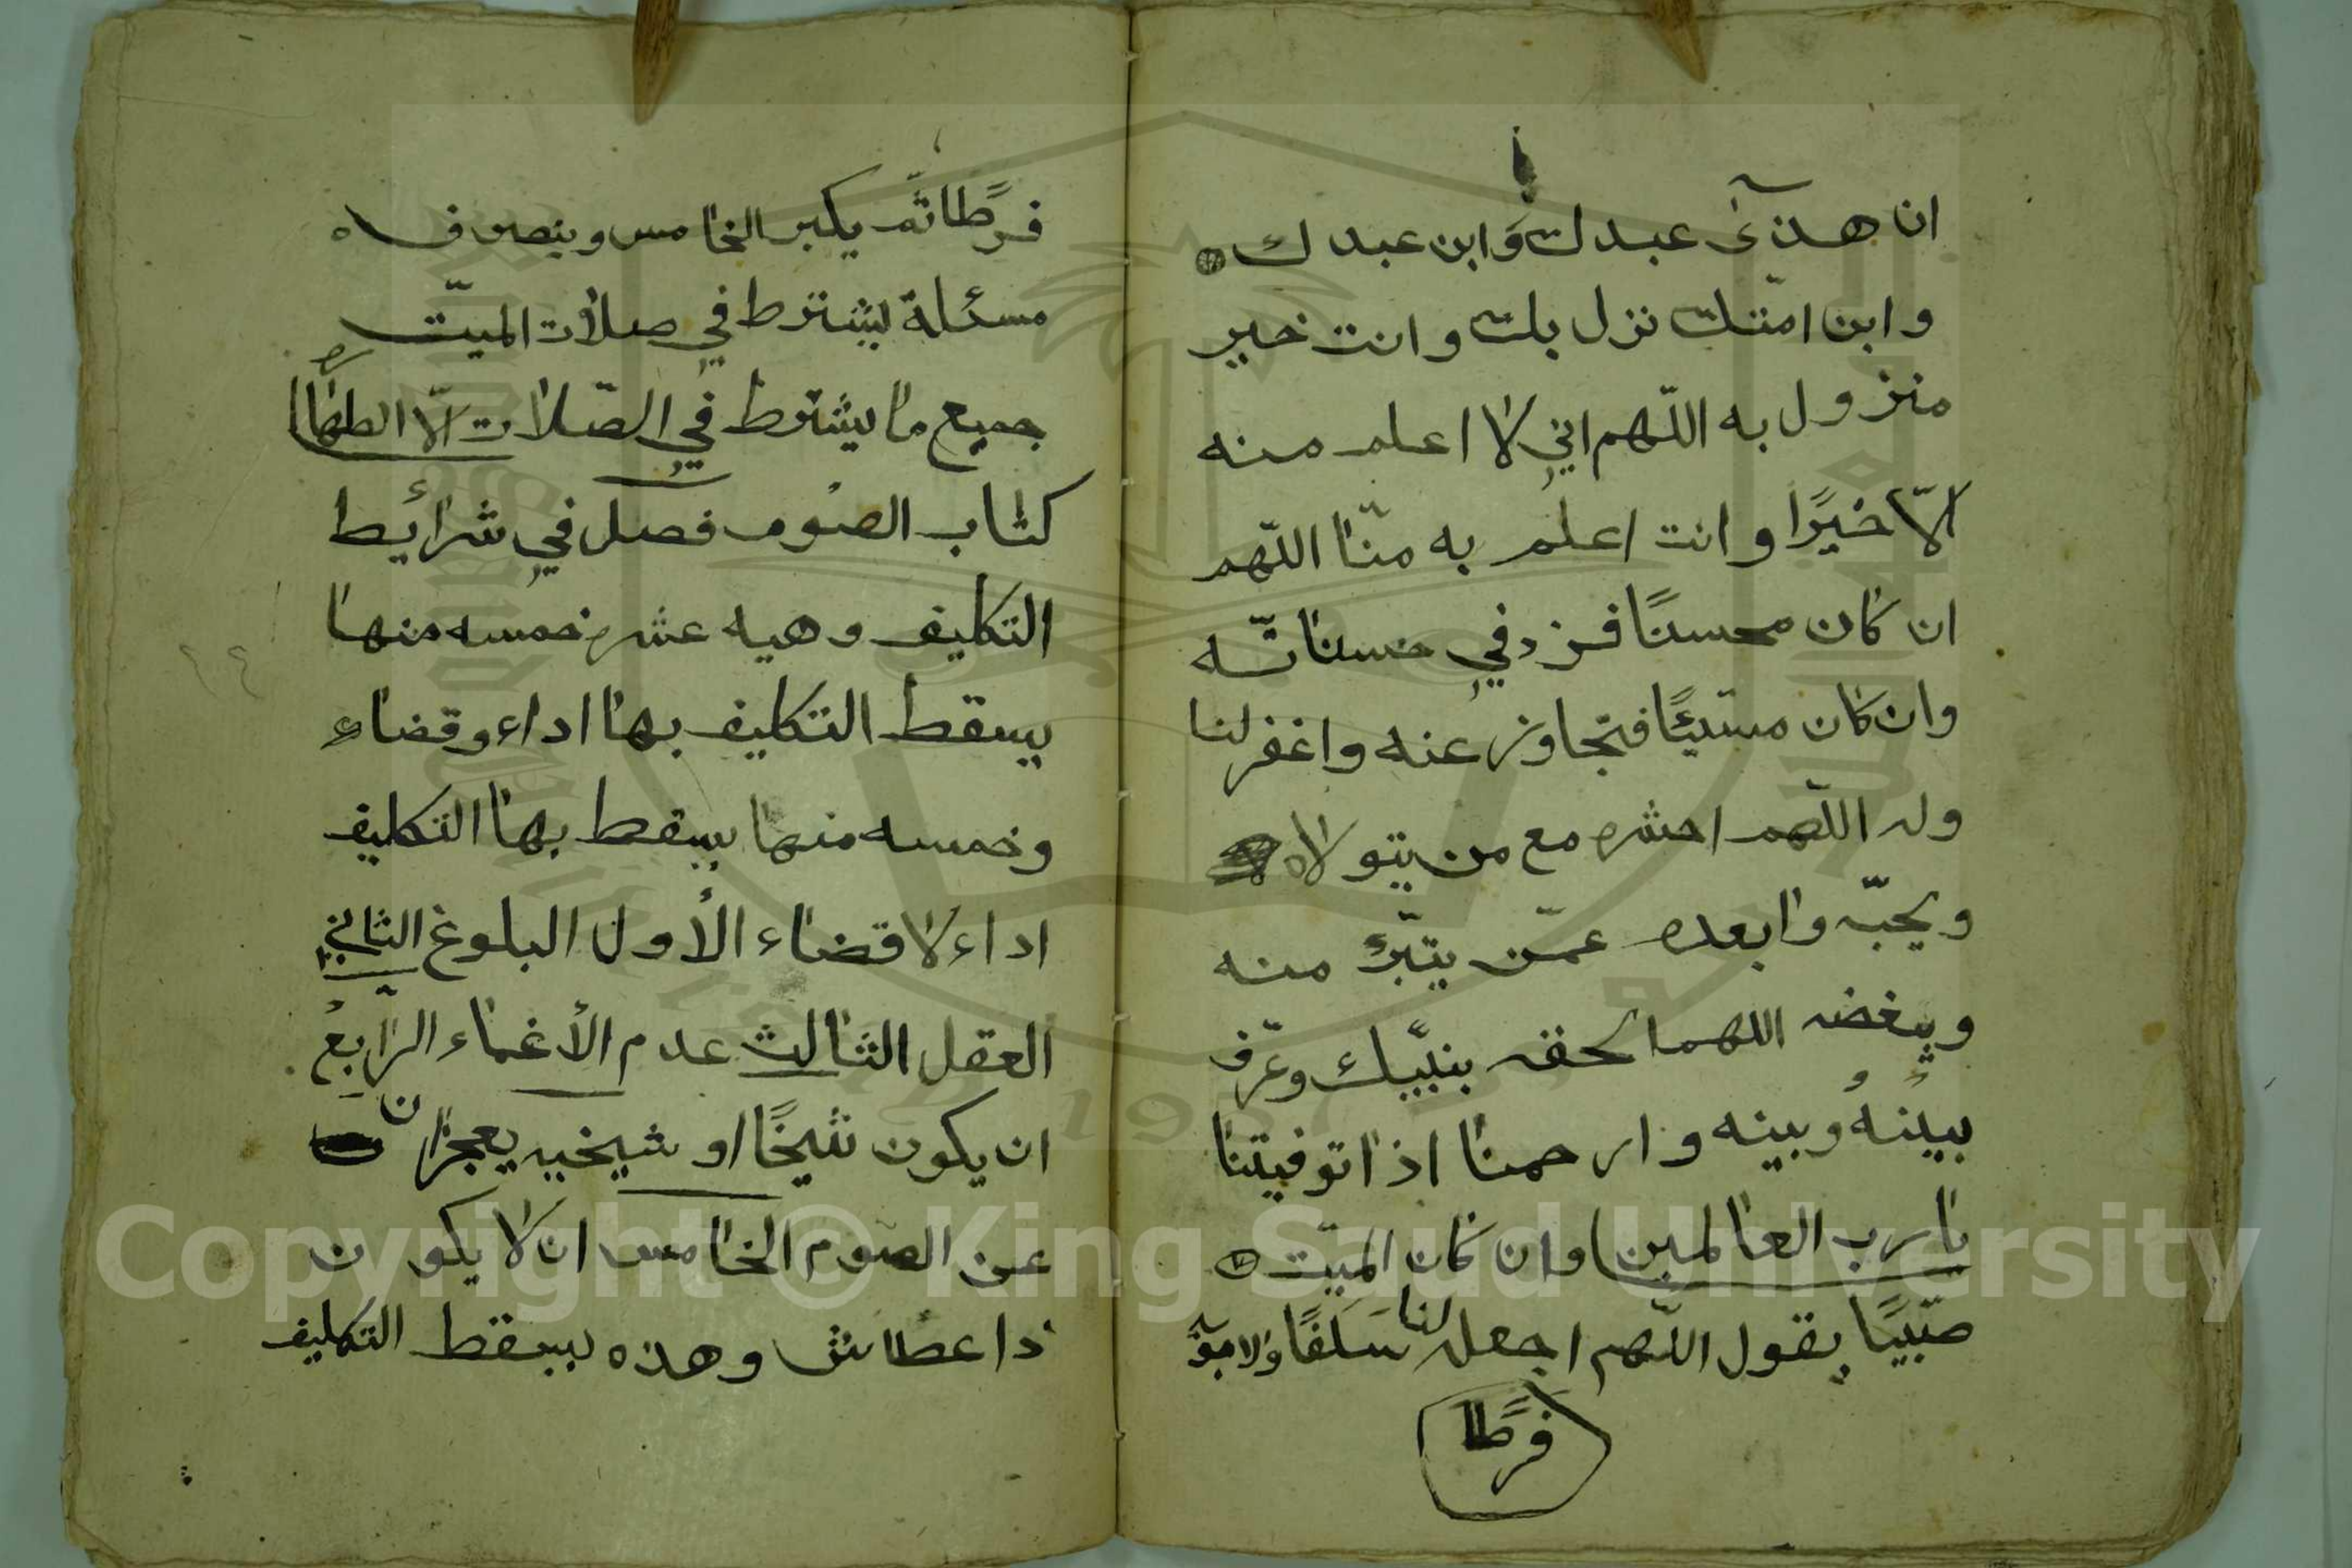 ان هذا عبدك وَابن عبدك
وابن امتك نزل بك وانت خير
منزول به اللّهم اني لا اعلم منه
الّا خيرًا وانت اعلم به منّا اللّهم
ان كان محسنًا فزد في حسناته
وان كان مسيئًا فتجاوز عنه واغفر لنا
وله اللّهم احشره مع من يتولاه
ويحبّه وابعده عمّن يتبرّء منه
ويبغضه اللهم الحقه بنبيّك وعرّف
بينهُ وبينه وارحمنا اذا توفيتنا
يا رب العالمين وان كان الميّت
صّبيًا يقول اللّهم اجعل لنا سَلَفًا ولابويه
فرطًا
فرطًا ثّم يكبر الخامس وينصرف
مسئلة يشترط في صلات الميّت
جميع ما يشترط في الصّلات الّا الطهاره
كتاب الصوم فصل في شرائط
التكليف وهيه عشره خمسه منها
يسقط التكليف بها اداء وقضاء
وخمسه منها يسقط بها التكليف
اداء لا قضاء الأول البلوغ الثاني
العقل الثالث عدم الأغماء الرّابعُ
ان يكون شيخًا او شيخيه يعجزان
عن الصوم الخامس ان لا يكون
ذا عطاش وهذه يسقط التكليف
Copyright © King Saud University
1957